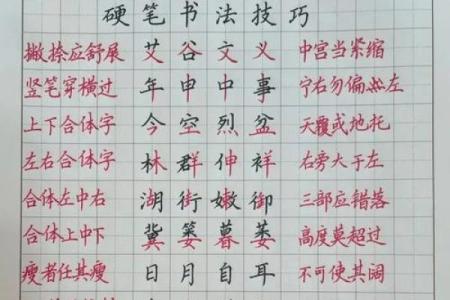 硬笔书法技巧
撇捺应舒展 艾谷文义 中宫当紧缩
竖笔穿横过 年申中事 宁右勿偏左
上下合体字 今空烈盆 天覆或地托
左右合体字 林群伸祥 右旁大于左
合体左中右 湖街嫩御 三部应错落
合体上中下 冀篓暮萎 高度莫超过
瘦者任其瘦 日月自耳 不可使其阔